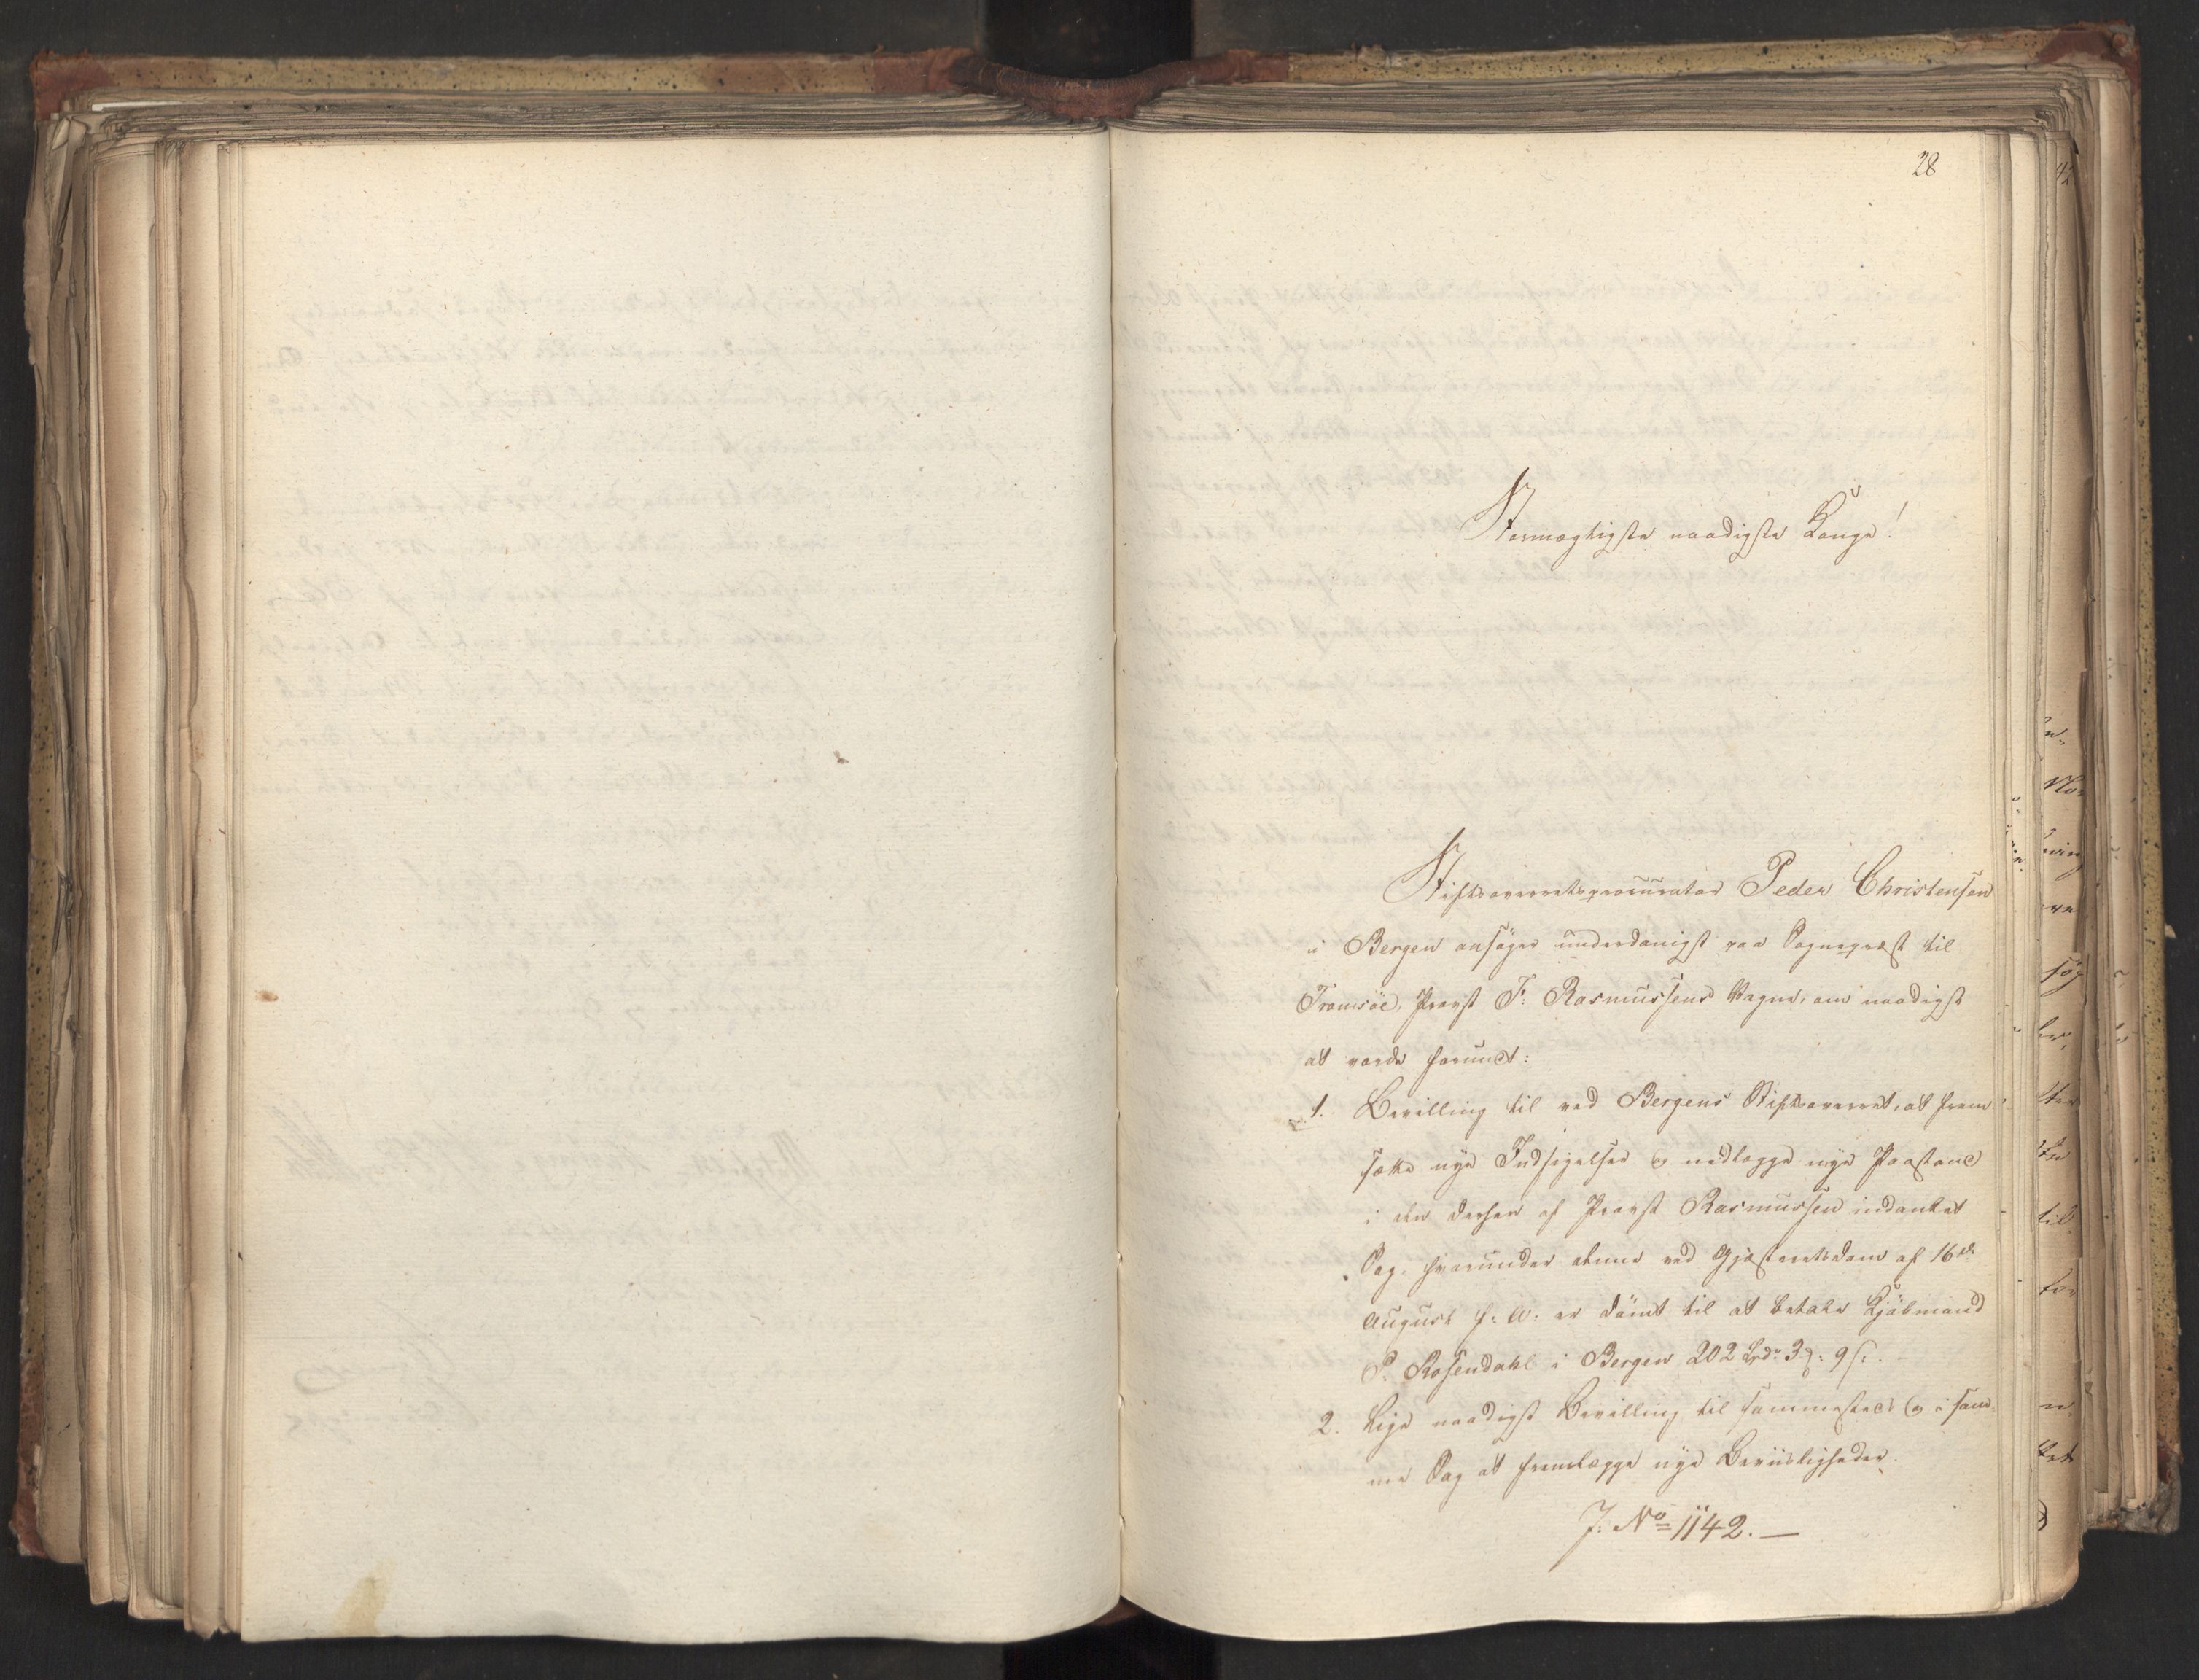 28
Stormægtigste naadigste Konge!
Stiftsoverretsprocurator Peder Christensen
i Bergen ansøger underdanigst paa Sognepræst til
Tromsöe, Provst F: Rasmussens Vegne, om naadigst
at vorde forundt:
1. Bevilling til ved Bergens Stiftsoverret, at frem
sætte nye Indsigelser og nedlægge nye Paastand
i den dertil af Provst Rasmussen indankede
Sag, hvorunder denne ved Gjæsteretsdom af 16de
August f: A: er dömt til at betale Kjöbmand
P. Rosendahl i Bergen 202 Spdr 3 : 9 s:.
2. Lige naadigst Bevilling til sammesteds og i sam-
me Sag at fremlægge nye Beviisligheder.
J: No 1142. —